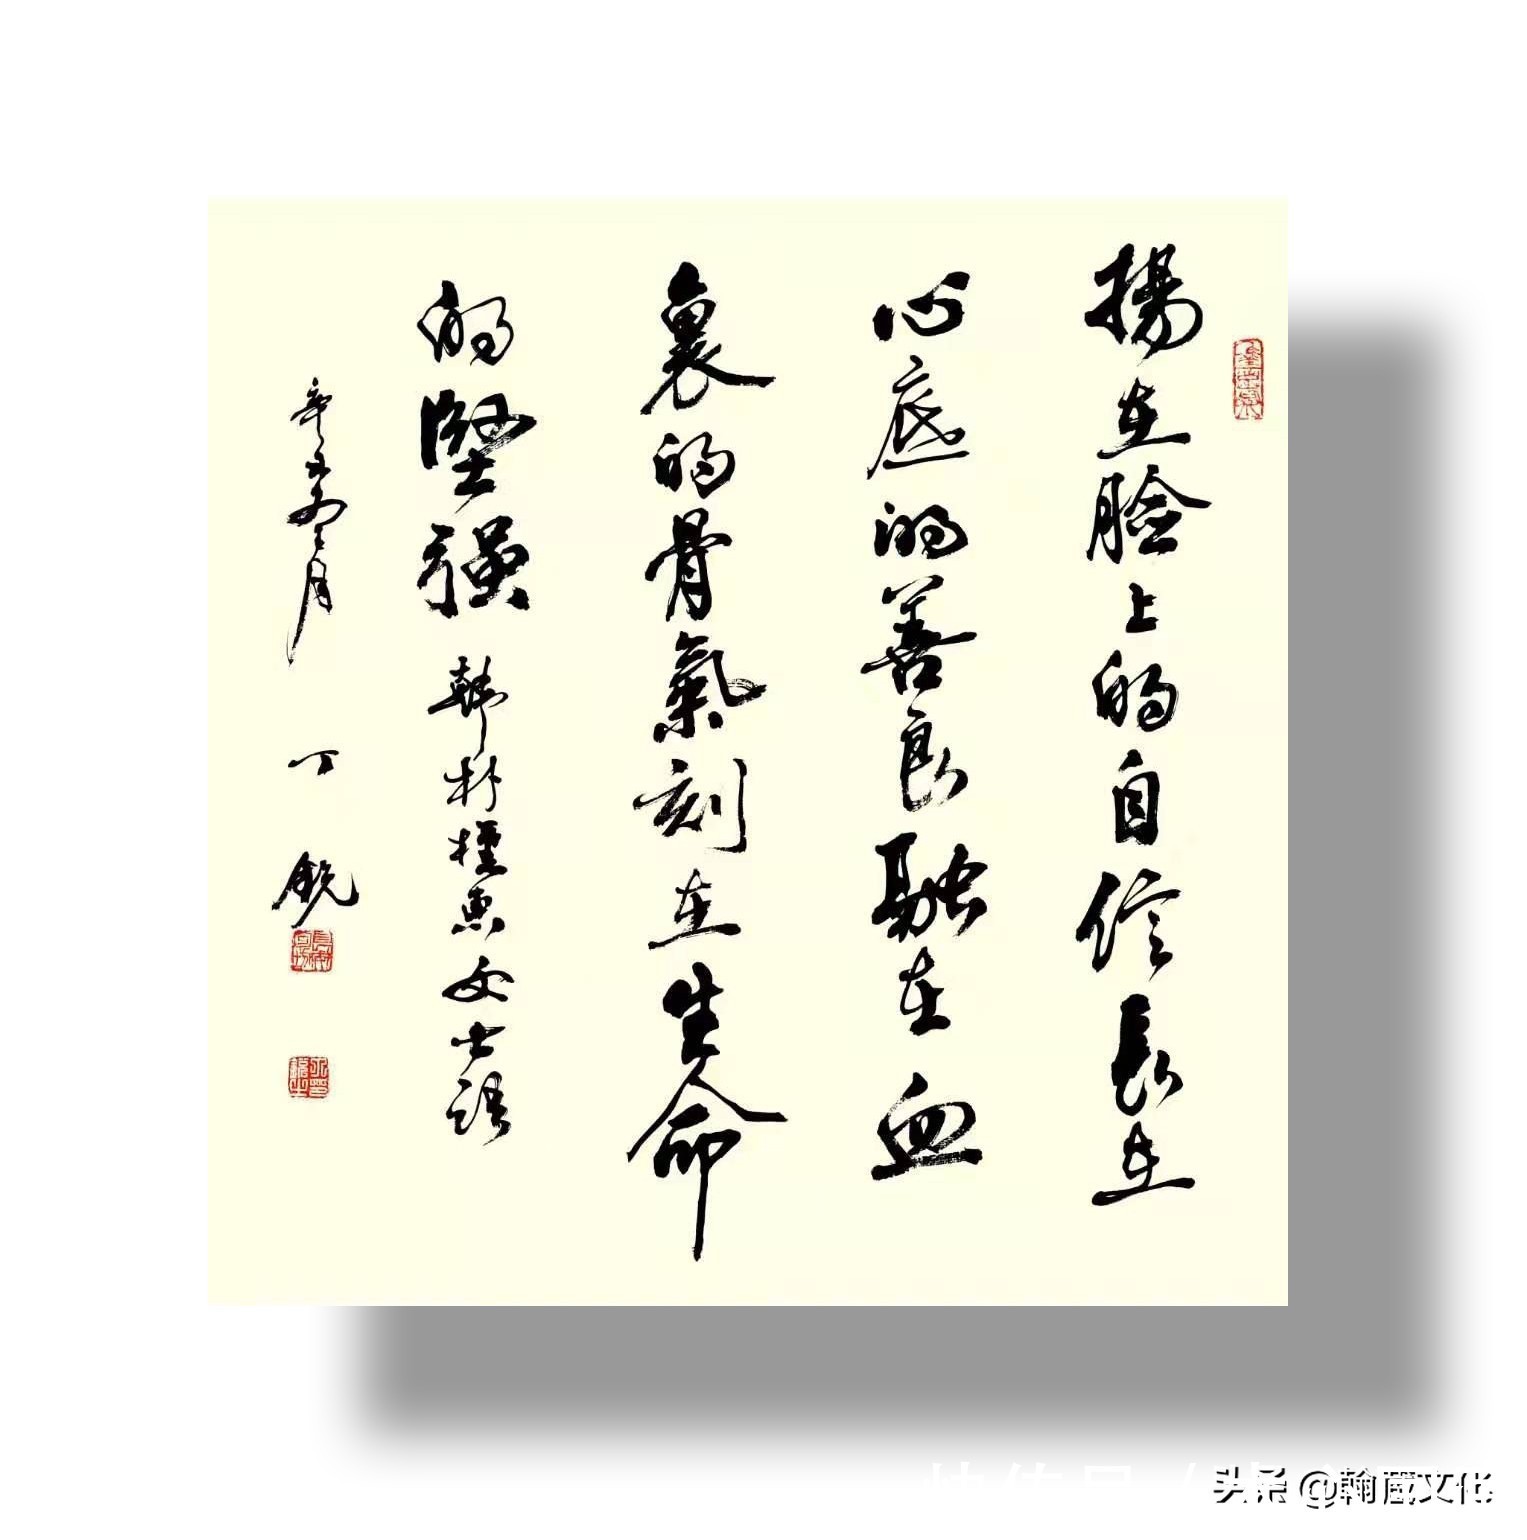 揚在臉上的自信長在
心底的善良融在血
裏的骨氣刻在生命
的堅强 韓朴槿惠女士語
辛丑 月 丁銳
快传号 /
头条 @翰 文化